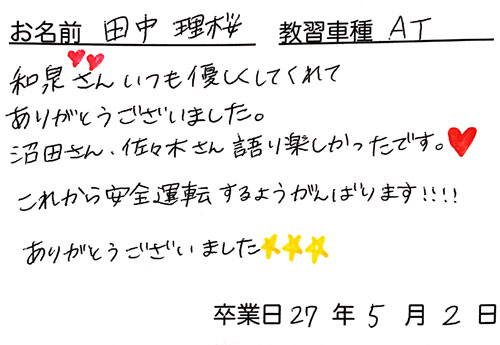 お名前 田中 理桜 教習車種 AT
和泉さんいつも優しくしてくれて
ありがとうございました。
沼田さん、佐々木さん語り楽しかったです。
これから安全運転するようがんばります!!!!
ありがとうございました
卒業日27年5月2日